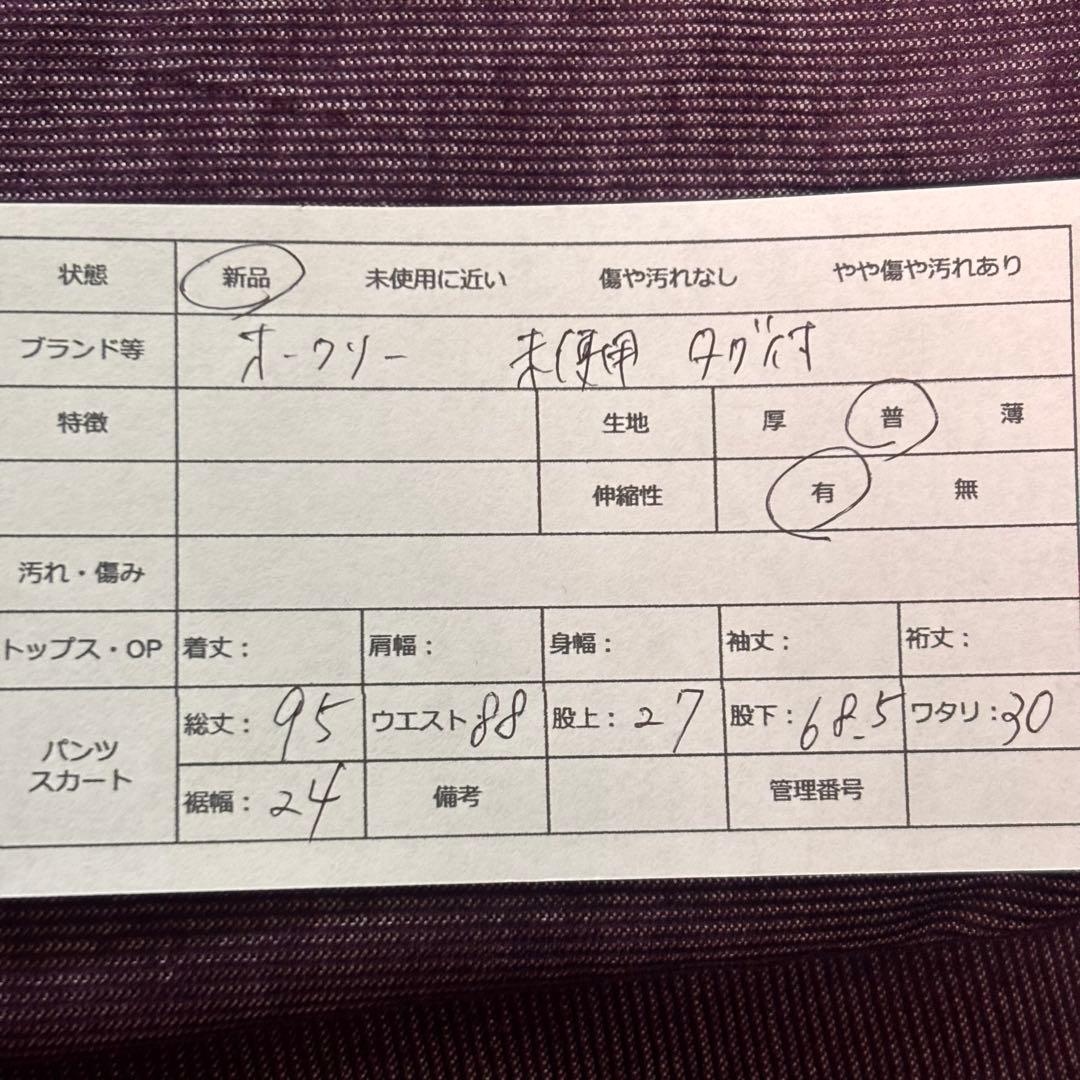 状態 新品 未使用に近い 傷や汚れなし やや傷や汚れあり
ブランド等 オークリー 未使用 タグ付
特徴 生地 厚 普 薄
伸縮性 有 無
汚れ・傷み
トップス・OP 着丈： 肩幅： 身幅： 袖丈： 裄丈：
パンツ スカート 総丈：95 ウエスト：88 股上：27 股下：68.5 ワタリ：30
裾幅：24 備考 管理番号